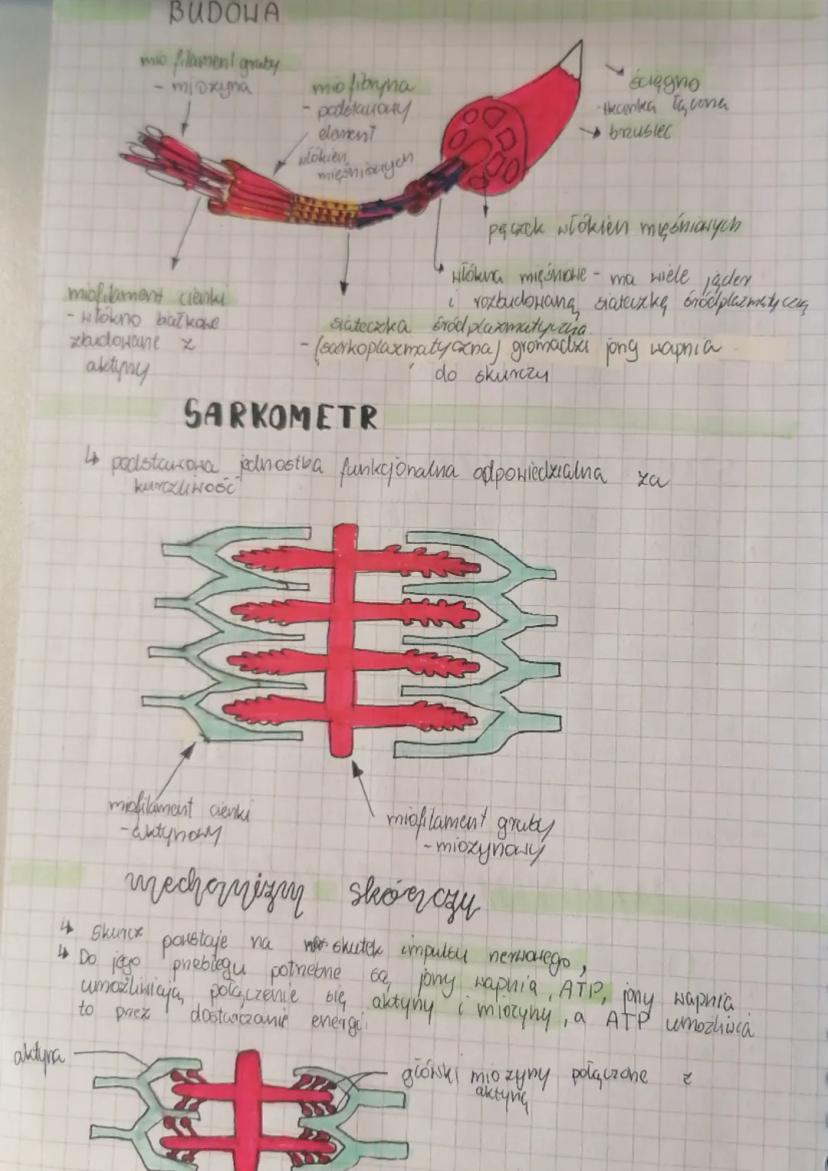 BUDOWA
miofilament gruby
- miozyna
miofibryna
- podstawowy
element
włókien
mięśniowych
ścięgno
-tkanka łączna
brzusiec
pęczek włókien mięśniowych
włókna mięśniowe - ma wiele jąder
i rozbudowaną siateczkę śródplazmatyczną
miofilament cienki
- włókno białkowe
zbudowane z
aktyny
siateczka śródplazmatyczna
- (sarkoplazmatyczna) gromadzi jony wapnia
do skurczy
SARKOMETR
↳ podstawowa jednostka funkcjonalna odpowiedzialna za
kurczliwość
miofilament cienki
- aktynowy
miofilament gruby
- miozynowy
mechanizm skórczy
↳ Skurcz powstaje na skutek impulsu nerwowego,
↳ Do jego przebiegu potrzebne są jony wapnia, ATP, jony wapnia
umożliwiają połączenie się aktyny i miozyny, a ATP umożliwia
to przez dostarczanie energi
aktyna
główki miozyny połączone z
aktyną